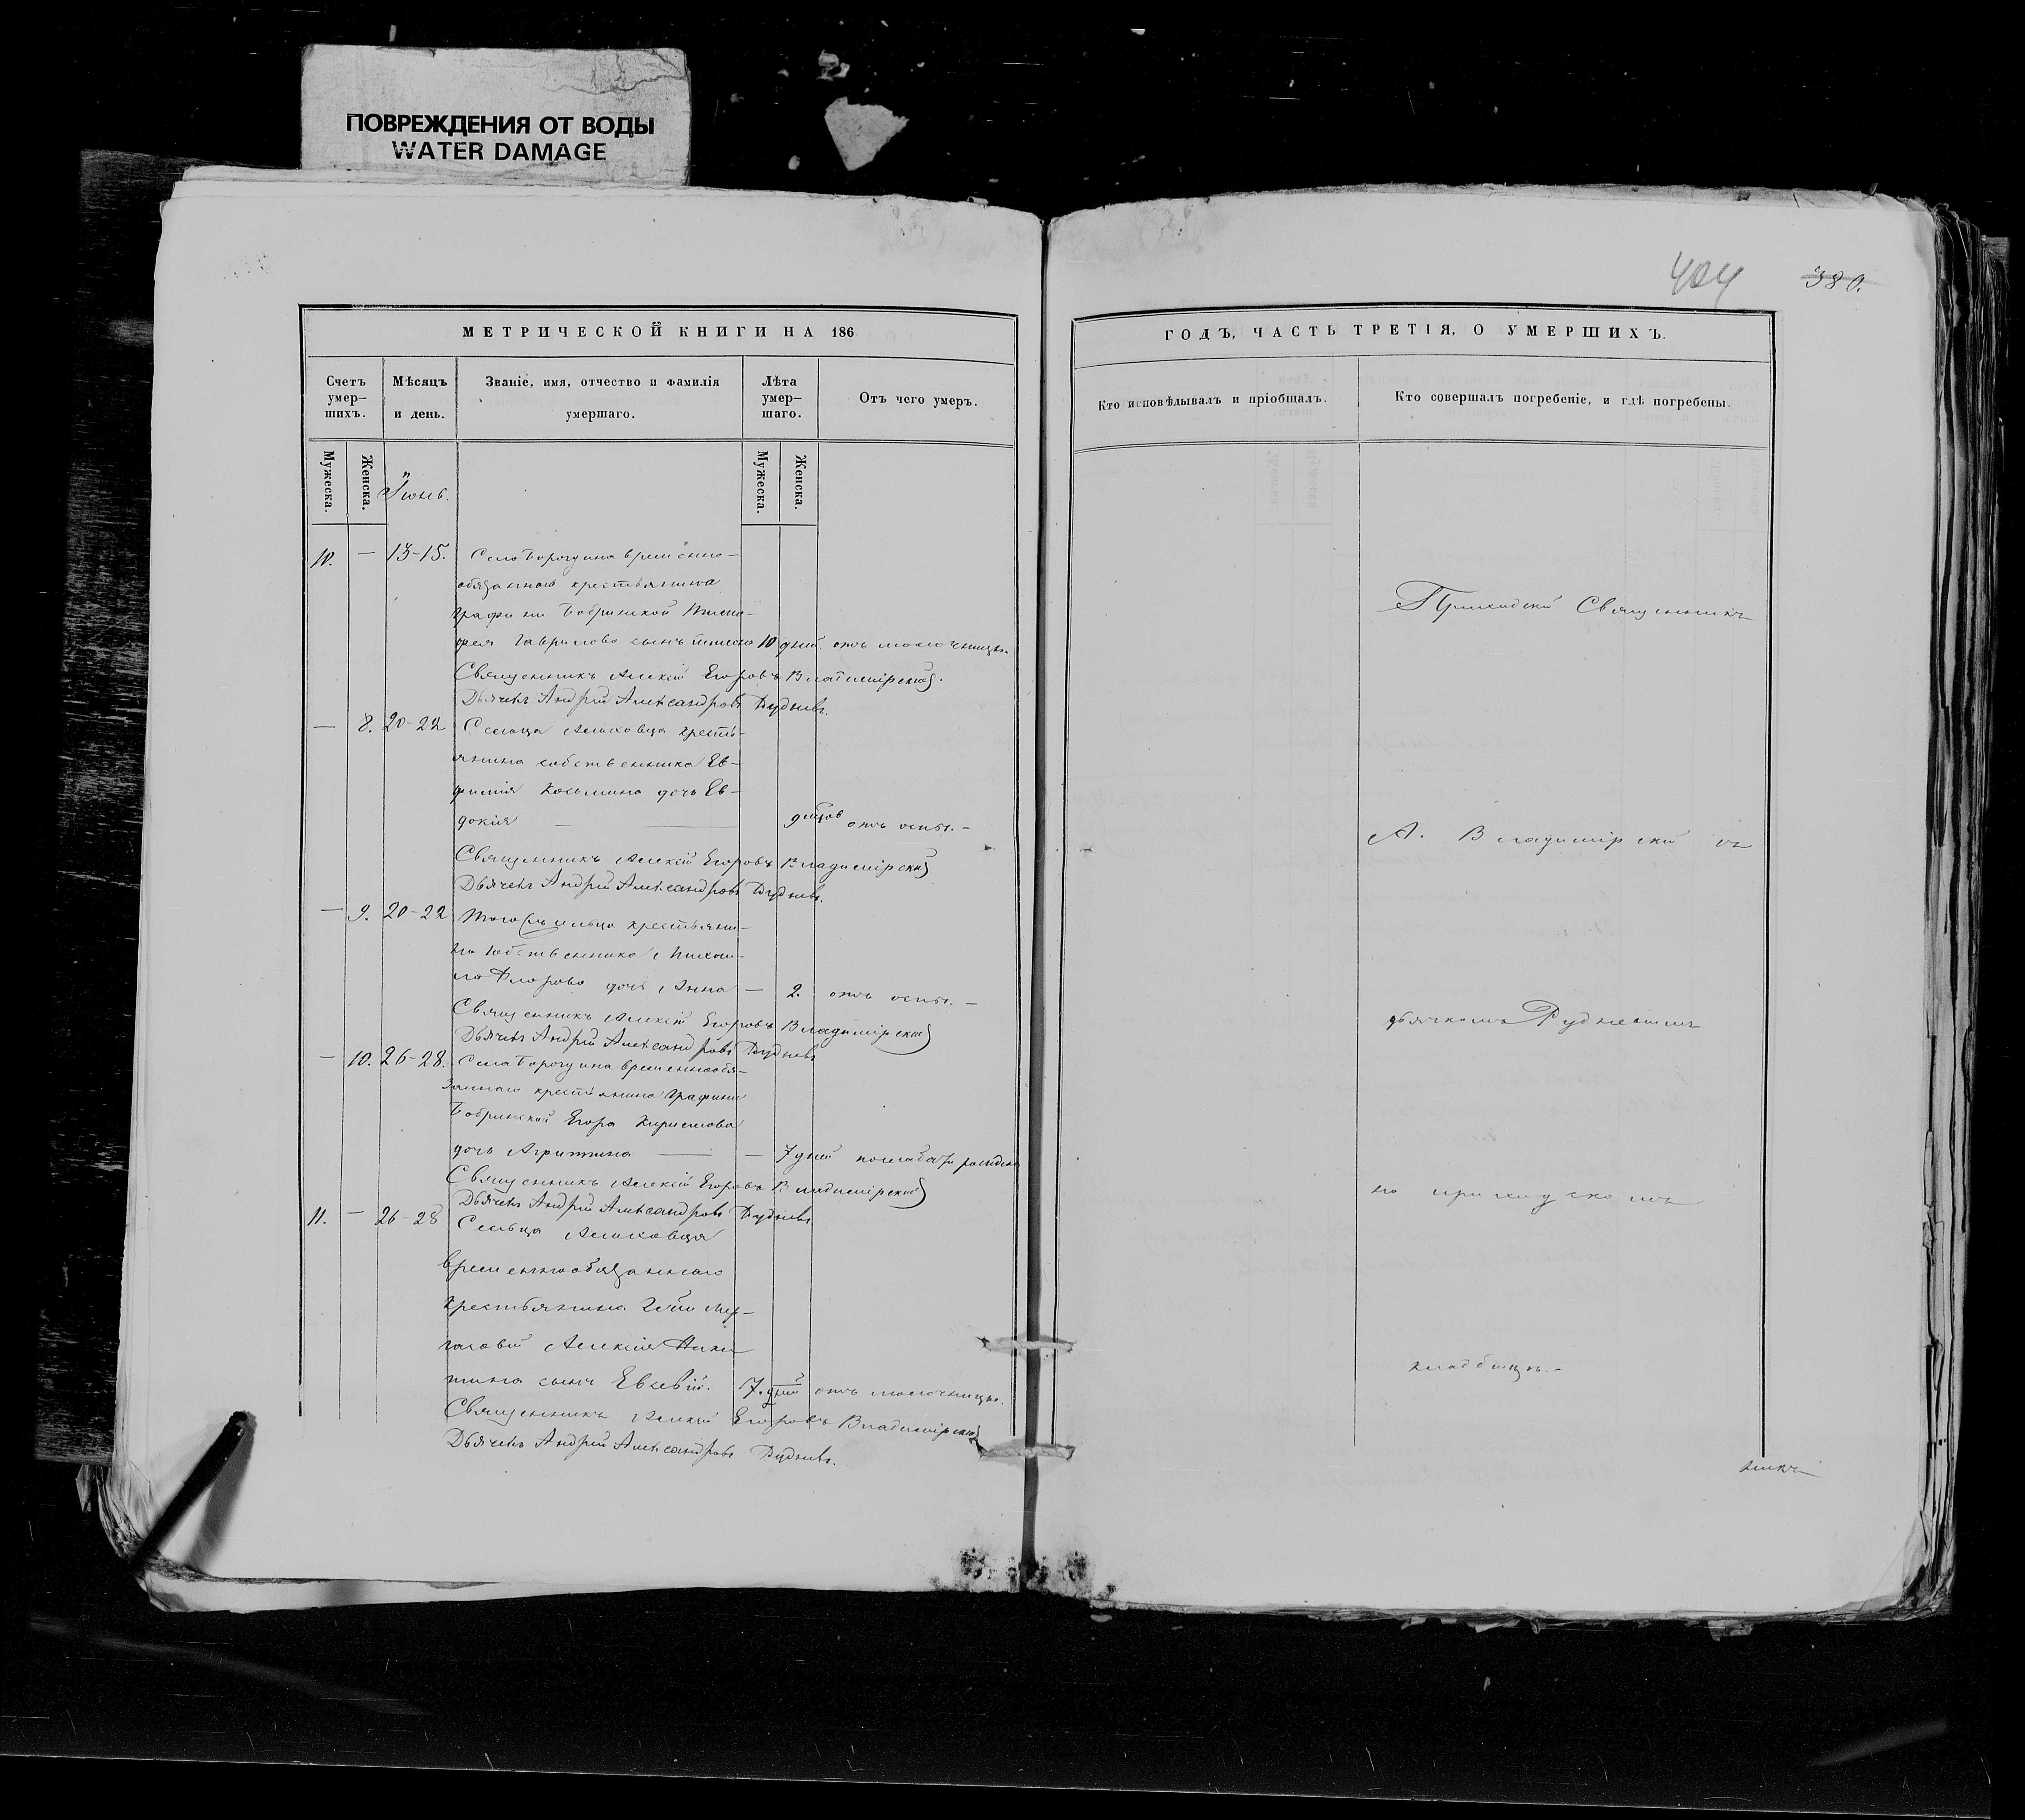 ПОВРЕЖДЕНИЯ ОТ ВОДЫ
WATER DAMAGE
404 380.
МЕТРИЧЕСКОЙ КНИГИ НА 186
Счетъ умер-шихъ.
Мѣсяцъ и день.
Званіе, имя, отчество и фамилія умершаго.
Лѣта умер-шаго.
Отъ чего умеръ.
Мужеска.
Женска.
Мужеска.
Женска.
Іюнь.
10. — 13-15. Села Бородина временно-
обязаннаго крестьянина
графини Бобринской
Гаврилова сынъ 10 дней. отъ молочницы.
Священникъ Алексій Егоровъ Владимірскій.
Дьячекъ Андрей Александровъ Рудневъ.
— 8. 20-22 Сельца крестъ-
янина собственника Ев-
фимія Козьмина дочь Ев-
докія — отъ оспы. —
Священникъ Алексій Егоровъ Владимірскій
Дьячекъ Андрей Александровъ Рудневъ.
— 9. 20-22 Того сельца крестьяни-
на собственника
Флорова дочь Анна — 2. отъ оспы. —
Священникъ Алексій Егоровъ Владимірскій
Дьячекъ Андрей Александровъ Рудневъ
— 10. 26-28. Села Бородина временнообя-
заннаго крестьянина графини
Бобринской Егора Кириллова
дочь Агрипина — — 7 дней
Священникъ Алексій Егоровъ Владимірскій
Дьячекъ Андрей Александровъ Рудневъ
11. — 26-28 Сельца
временнообязаннаго
крестьянина
Алексія Ники-
тина сынъ Евсевій. 7. дней отъ молочницы.
Священникъ Алексій Егоровъ Владимірскій
Дьячекъ Андрей Александровъ Рудневъ.
ГОДЪ, ЧАСТЬ ТРЕТІЯ, О УМЕРШИХЪ.
Кто исповѣдывалъ и пріобщалъ.
Кто совершалъ погребеніе, и гдѣ погребены.
Приходскій Священникъ
А. Владимірскій съ
дьячкомъ Рудневымъ
на приходскомъ
кладбищѣ. —